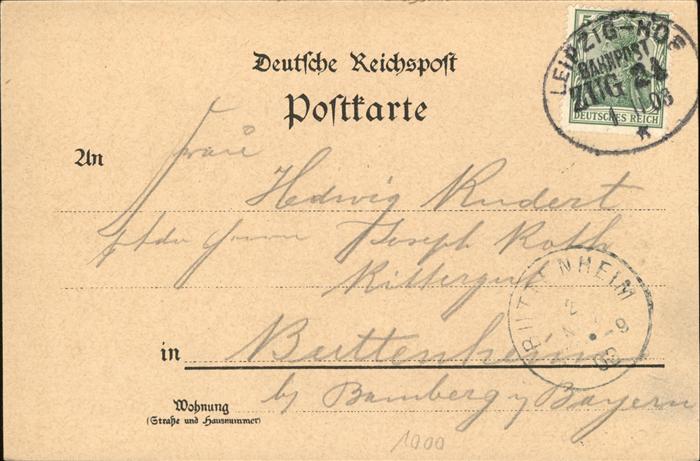 LEIPZIG-HOF
BAHNPOST
ZUG 24
03
5
DEUTSCHES REICH
Deutsche Reichspost
Postkarte
An Frau
Hedwig Rudert
Joseph Roth
Rittergut
in Buttenheim
by Bamberg Bayern
BUTTENHEIM
Wohnung
(Straße und Hausnummer)
1000